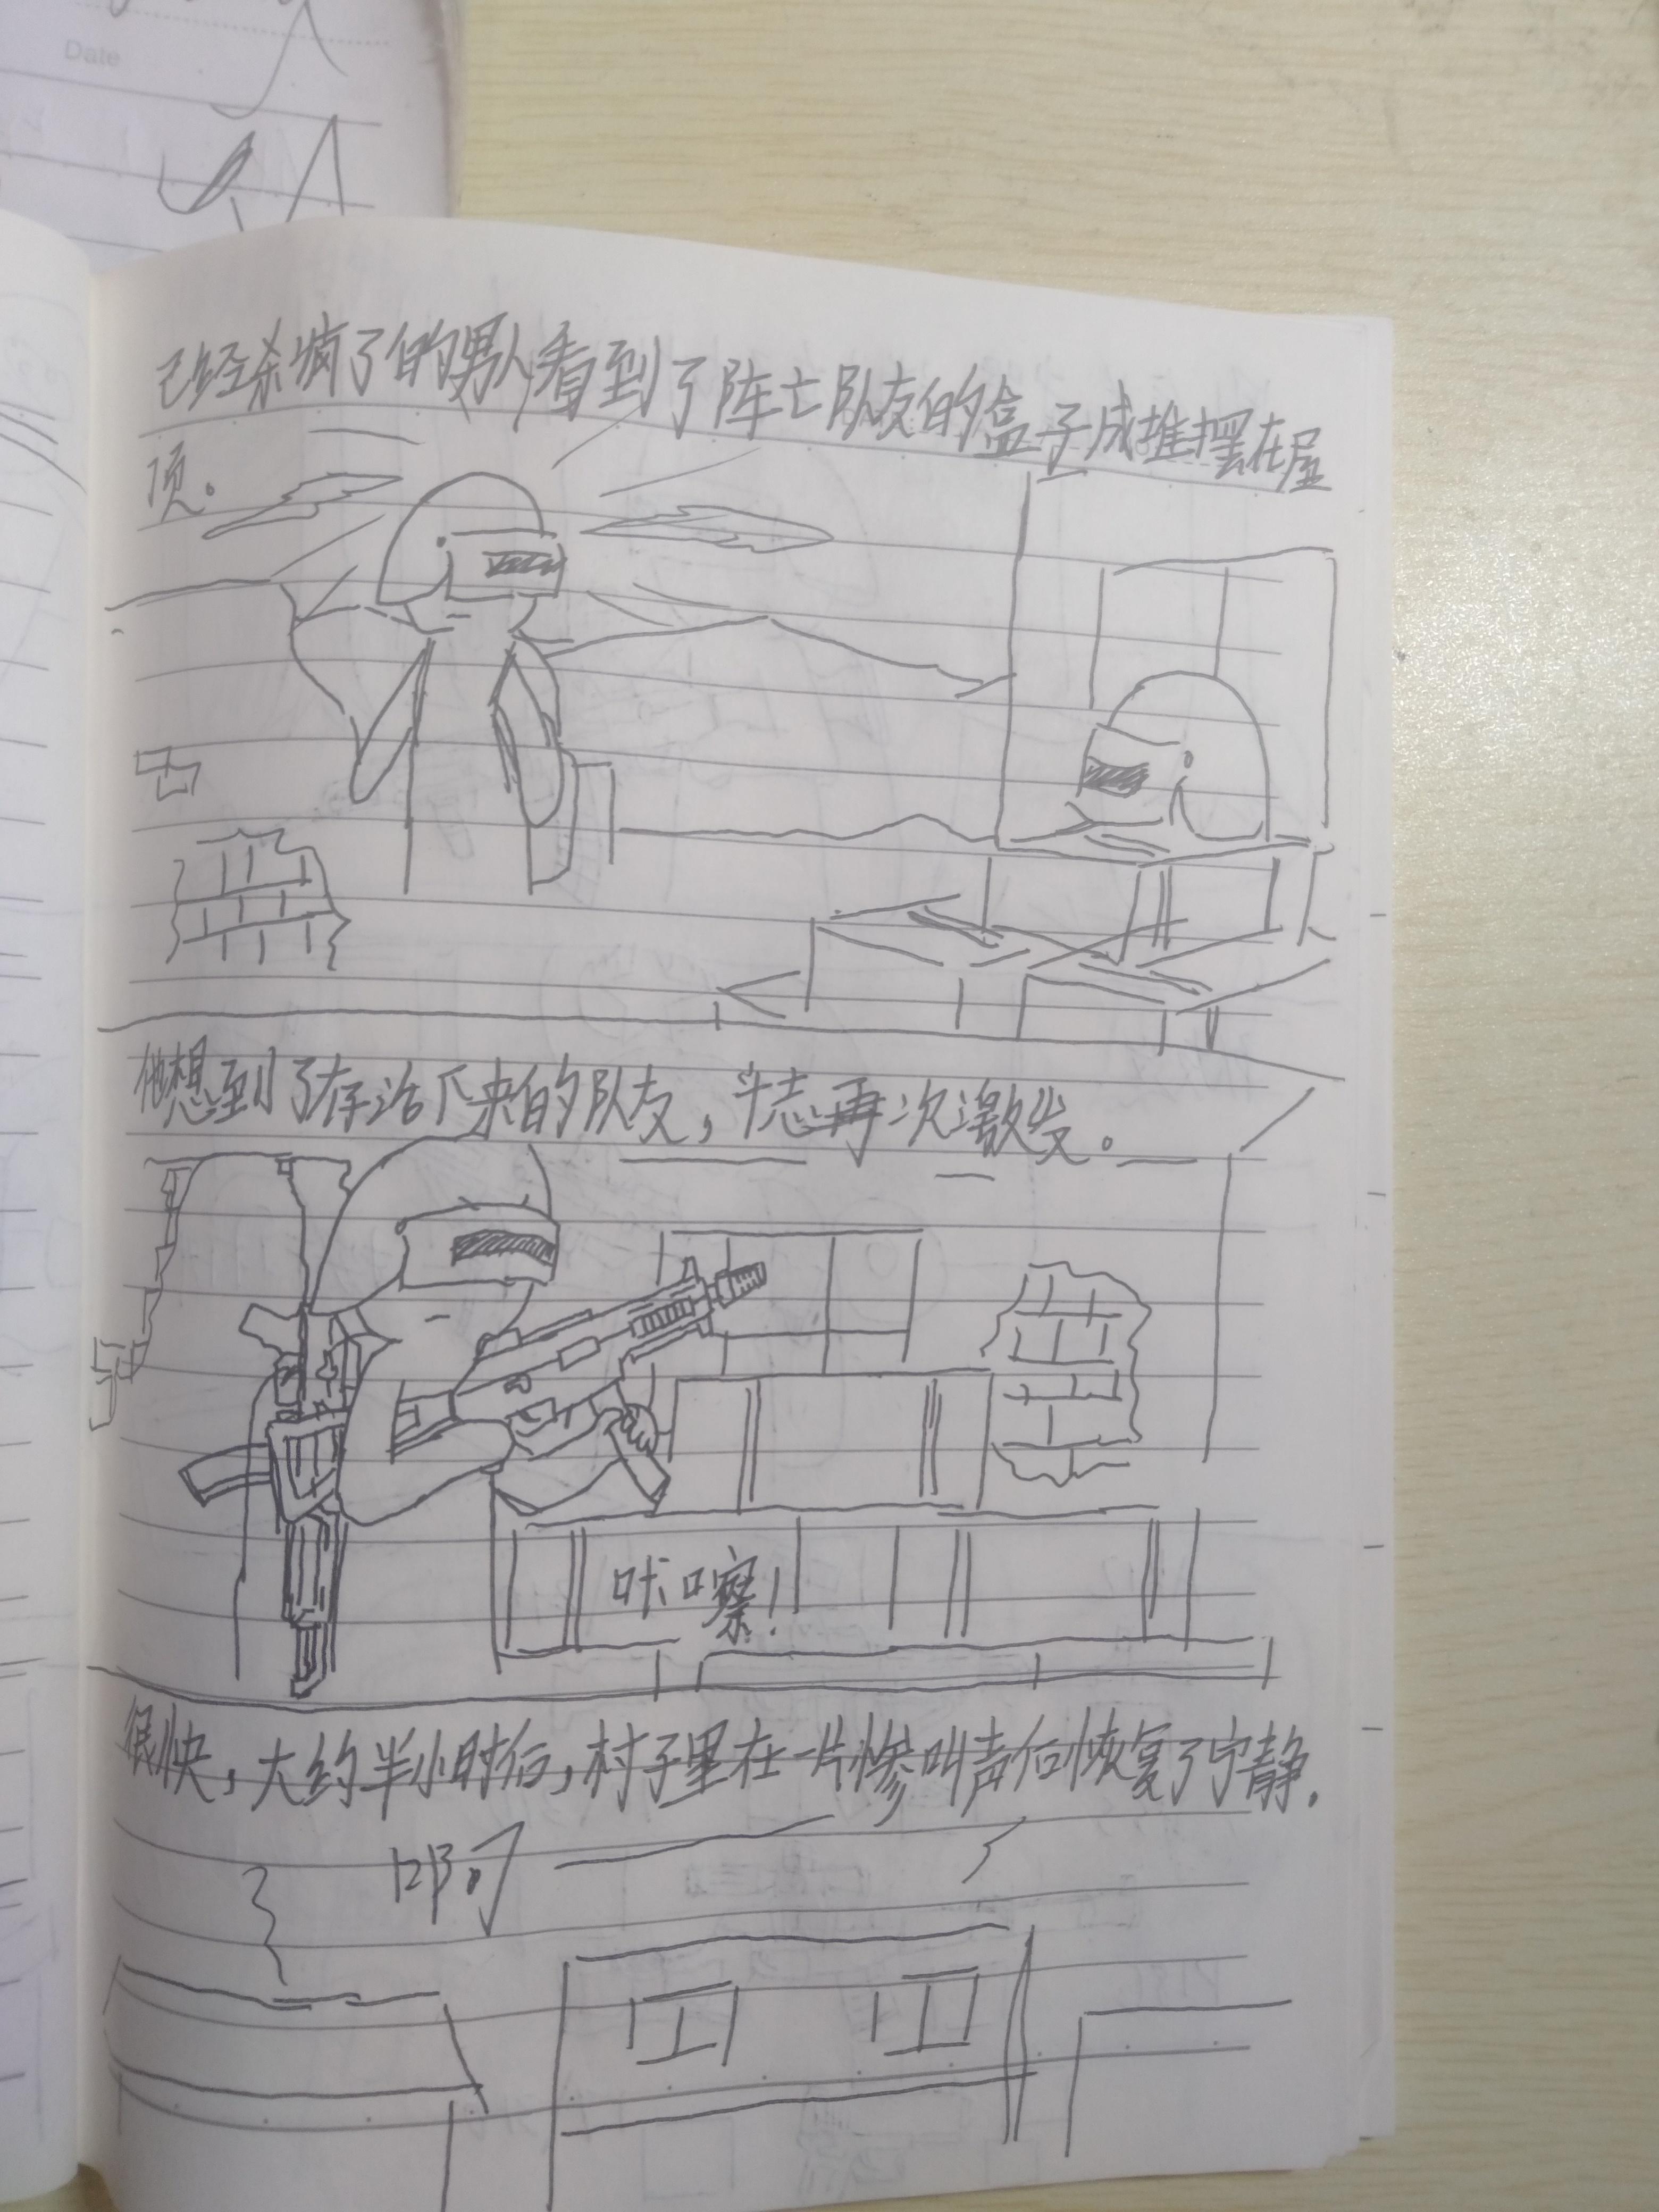 Date
已经杀疯了的男人看到了阵亡队友的盒子成堆摆在屋
顶。
他想到了存活下来的队友，斗志再次激发。
咔嚓！
很快，大约半小时后，村子里在一片惨叫声后恢复了宁静.
啊